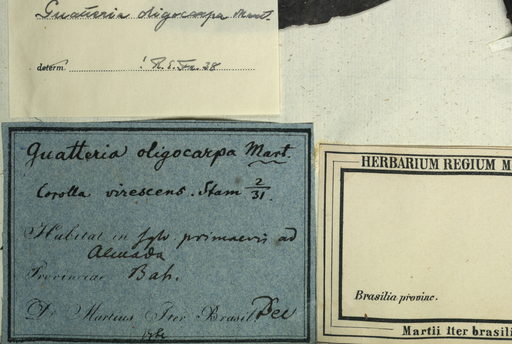 Guatteria oligocarpa Mart.
determ. ! R. E. Fr. 38
Guatteria oligocarpa Mart.
Corolla virescens. Stam 2/31.
Habitat in sylv primaevis ad
Almada
Provinciae Bah.
Dr Martius Iter Brasil Dec
HERBARIUM REGIUM M
Brasilia provinc.
Martii Iter brasili